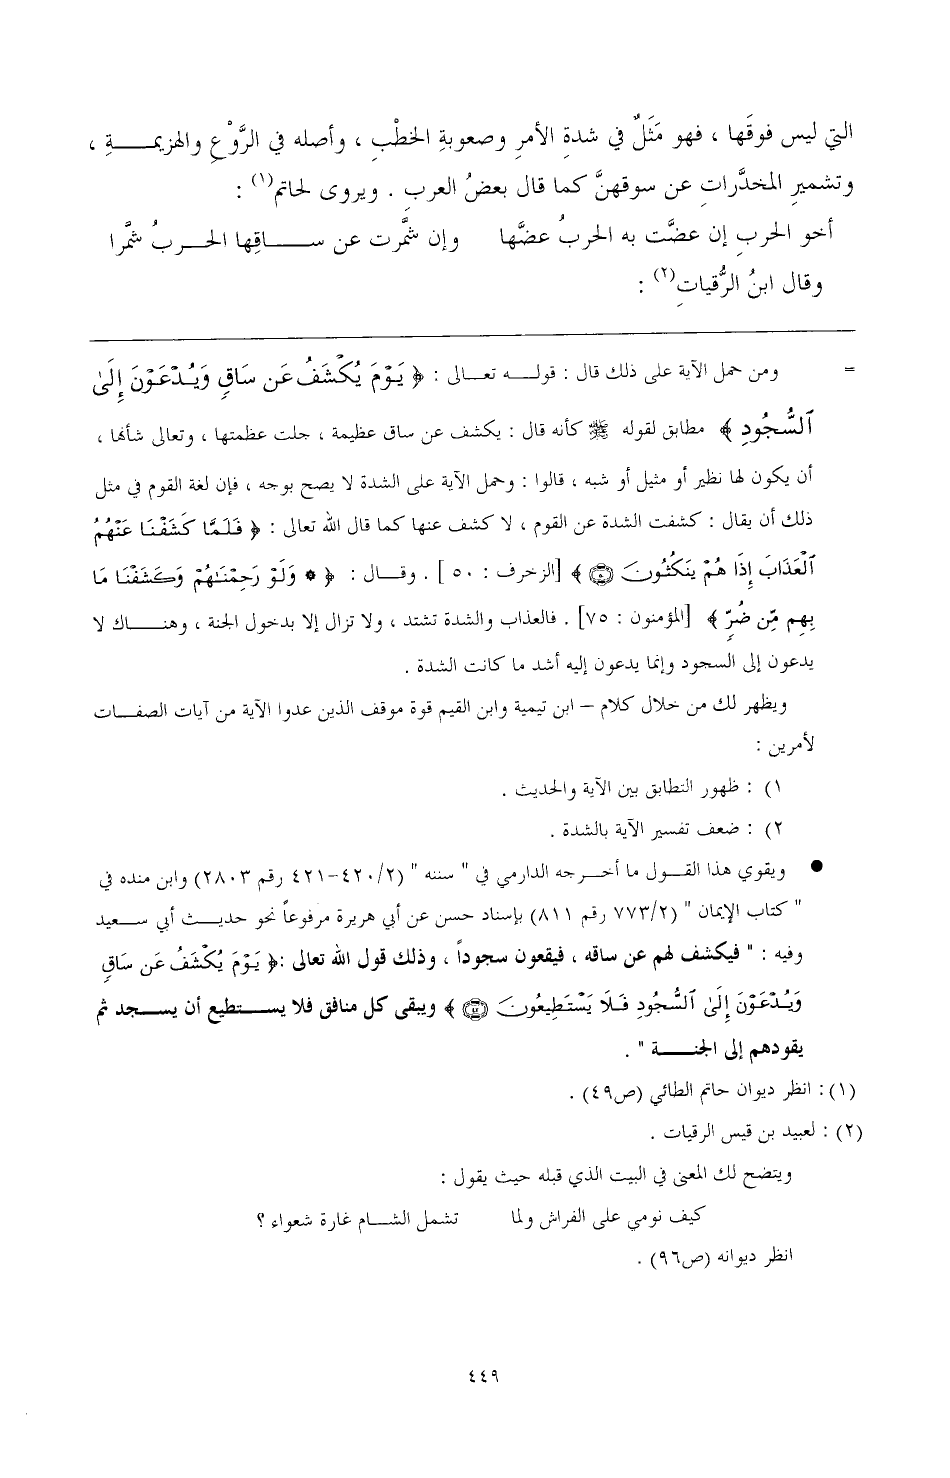 التي ليس فوقَها ، فهو مَثَلٌ في شدةِ الأمرِ وصعوبةِ الخطْبِ ، وأصله في الرَّوْعِ والهزيمـــــةِ ،
وتشميرِ المخدَّراتِ عن سوقهنَّ كما قال بعضُ العربِ . ويروى لحاتمِ(١) :
أخو الحربِ إن عضَّت به الحربُ عضَّها وإن شمَّرت عن ســـــاقِها الحـــربُ شمَّرا
وقال ابنُ الرُّقيات(٢) :
= ومن حمل الآية على ذلك قال : قولـــه تعـــالى : ﴿ يَوْمَ يُكْشَفُ عَن سَاقٍ وَيُدْعَوْنَ إِلَى
ٱلسُّجُودِ ﴾ مطابق لقوله ﷺ كأنه قال : يكشف عن ساق عظيمة ، جلت عظمتها ، وتعالى شأنها ،
أن يكون لها نظير أو مثيل أو شبه ، قالوا : وحمل الآية على الشدة لا يصح بوجه ، فإن لغة القوم في مثل
ذلك أن يقال : كشفت الشدة عن القوم ، لا كشف عنها كما قال الله تعالى : ﴿ فَلَمَّا كَشَفْنَا عَنْهُمُ
ٱلْعَذَابَ إِذَا هُمْ يَنكُثُونَ ۝٥٠ ﴾ [الزخرف : ٥٠ ] . وقـــال : ﴿ * وَلَوْ رَحِمْنَـٰهُمْ وَكَشَفْنَا مَا
بِهِم مِّن ضُرٍّ ﴾ [المؤمنون : ٧٥] . فالعذاب والشدة تشتد ، ولا تزال إلا بدخول الجنة ، وهنـــاك لا
يدعون إلى السجود وإنما يدعون إليه أشد ما كانت الشدة .
ويظهر لك من خلال كلام – ابن تيمية وابن القيم قوة موقف الذين عدوا الآية من آيات الصفـــات
لأمرين :
١) : ظهور التطابق بين الآية والحديث .
٢) : ضعف تفسير الآية بالشدة .
● ويقوي هذا القـــول ما أخـــرجه الدارمي في " سننه " (٤٢٠/٢-٤٢١ رقم ٢٨٠٣) وابن منده في
" كتاب الإيمان " (٧٧٣/٢ رقم ٨١١) بإسناد حسن عن أبي هريرة مرفوعاً نحو حديـــث أبي ســـعيد
وفيه : " فيكشف لهم عن ساقه ، فيقعون سجوداً ، وذلك قول الله تعالى :﴿ يَوْمَ يُكْشَفُ عَن سَاقٍ
وَيُدْعَوْنَ إِلَى ٱلسُّجُودِ فَلَا يَسْتَطِيعُونَ ۝٤٢ ﴾ ويبقى كل منافق فلا يســـتطيع أن يســـجد ثم
يقودهم إلى الجنـــــة " .
(١) : انظر ديوان حاتم الطائي (ص٤٩) .
(٢) : لعبيد بن قيس الرقيات .
ويتضح لك المعنى في البيت الذي قبله حيث يقول :
كيف نومي على الفراش ولما تشمل الشـــام غارة شعواء ؟
انظر ديوانه (ص٩٦) .
٤٤٩